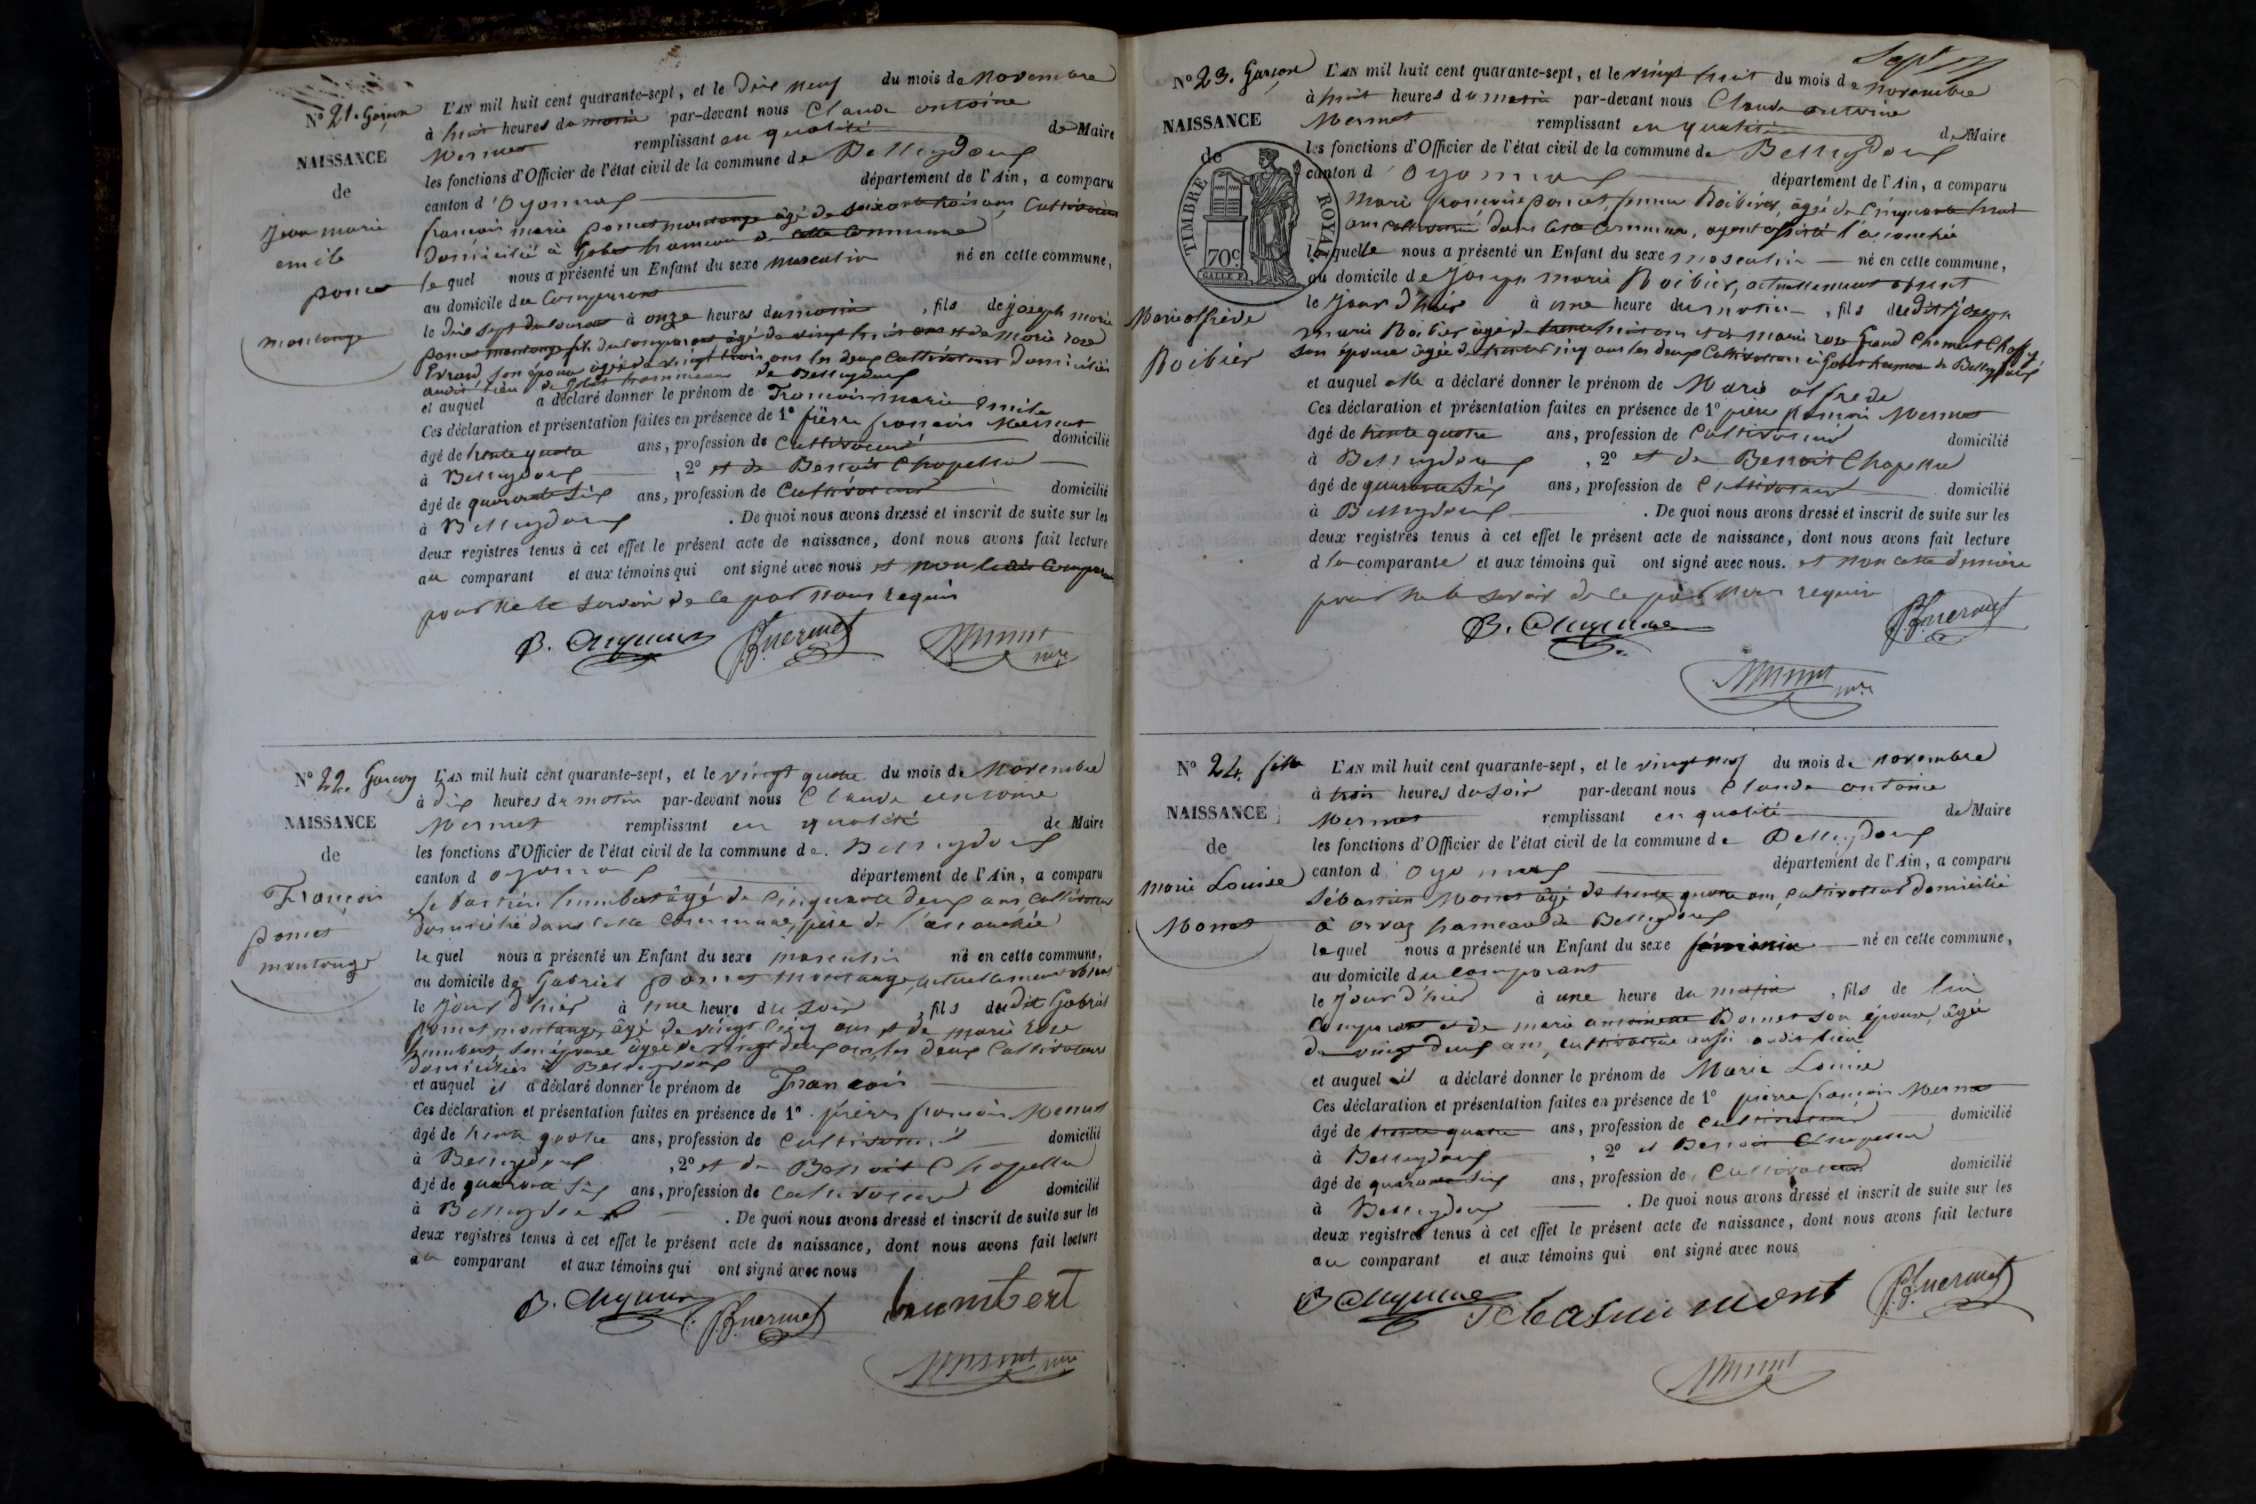 N° 21. Garçon
NAISSANCE
de
Jean marie
emile
poncet
montange
L'AN mil huit cent quarante-sept, et le Dix neuf du mois de Novembre
à huit heures du matin par-devant nous Claude antoine
Mermet remplissant en qualité de Maire
les fonctions d'Officier de l'état civil de la commune de Belleydoux
canton d'Oyonnax département de l'Ain, a comparu
françois marie poncet montange âgé de soixante trois ans, Cultivateur
Domicilié à Gobet hameau de cette Commune
le quel nous a présenté un Enfant du sexe masculin né en cette commune,
au domicile du Comparant
le dix sept du courant à onze heures du matin, fils de joseph marie
poncet montange fils du comparant âgé de vingt huit ans et de Marie rose
Evrard son épouse âgée de vingt trois ans les deux Cultivateurs Domiciliés
audit lieu de Gobet hameau de Belleydoux
et auquel a déclaré donner le prénom de Marie Emile
Ces déclaration et présentation faites en présence de 1° pierre françois Mermet
âgé de trente quatre ans, profession de Cultivateur domicilié
à Belleydoux, 2° et de Benoit Chapellu
âgé de quarante six ans, profession de Cultivateur domicilié
à Belleydoux. De quoi nous avons dressé et inscrit de suite sur les
deux registres tenus à cet effet le présent acte de naissance, dont nous avons fait lecture
au comparant et aux témoins qui ont signé avec nous et non ledit Comparant
pour ne le savoir de ce par nous requis
N° 22. Garçon
NAISSANCE
de
François
poncet
montange
L'AN mil huit cent quarante-sept, et le vingt quatre du mois de Novembre
à dix heures du matin par-devant nous Claude antoine
Mermet remplissant en qualité de Maire
les fonctions d'Officier de l'état civil de la commune de Belleydoux
canton d'oyonnax département de l'Ain, a comparu
Sébastien humbert âgé de Cinquante deux ans Cultivateur
domicilié dans cette Commune, père de l'accouchée
le quel nous a présenté un Enfant du sexe masculin né en cette commune,
au domicile de Gabriel poncet montange, actuellement absent
le jour d'hier à une heure du soir, fils dudit Gabriel
poncet montange, âgé de vingt cinq ans et de marie rose
humbert, son épouse âgée de vingt deux ans les deux Cultivateurs
domiciliés à Belleydoux
et auquel il a déclaré donner le prénom de François
Ces déclaration et présentation faites en présence de 1° pierre françois Mermet
âgé de trente quatre ans, profession de Cultivateur domicilié
à Belleydoux, 2° et de Benoit Chapellu
âgé de quarante six ans, profession de Cultivateur domicilié
à Belleydoux. De quoi nous avons dressé et inscrit de suite sur les
deux registres tenus à cet effet le présent acte de naissance, dont nous avons fait lecture
au comparant et aux témoins qui ont signé avec nous
humbert
Sept
N° 23. Garçon
NAISSANCE
de
TIMBRE ROYAL
70c
Marie alfrède
Boibier
L'AN mil huit cent quarante-sept, et le vingt huit du mois de novembre
à huit heures du matin par-devant nous Claude antoine
Mermet remplissant en qualité de Maire
les fonctions d'Officier de l'état civil de la commune de Belleydoux
canton d'Oyonnax département de l'Ain, a comparu
Marie françoise poncet femme Boibier, âgée de Cinquante huit
ans cultivatrice dans cette Commune, ayant assisté l'accouchée
laquelle nous a présenté un Enfant du sexe masculin né en cette commune,
au domicile de Joseph marie Boibier, actuellement absent
le jour d'hier à une heure du matin, fils dudit joseph
marie Boibier âgé de trente huit ans et de marie rose Grand Clement Chaffy
son épouse âgée de trente cinq ans les deux Cultivateurs à Gobet hameau de Belleydoux
et auquel elle a déclaré donner le prénom de Marie alfrede
Ces déclaration et présentation faites en présence de 1° pierre françois Mermet
âgé de trente quatre ans, profession de Cultivateur domicilié
à Belleydoux, 2° et de Benoit Chapellu
âgé de quarante six ans, profession de Cultivateur domicilié
à Belleydoux. De quoi nous avons dressé et inscrit de suite sur les
deux registres tenus à cet effet le présent acte de naissance, dont nous avons fait lecture
à la comparante et aux témoins qui ont signé avec nous. et non cette dernière
pour ne le savoir de ce par nous requise
N° 24. fille
NAISSANCE
de
Marie Louise
Monet
L'AN mil huit cent quarante-sept, et le vingt neuf du mois de novembre
à trois heures du soir par-devant nous Claude antoine
Mermet remplissant en qualité de Maire
les fonctions d'Officier de l'état civil de la commune de Belleydoux
canton d'Oyonnax département de l'Ain, a comparu
Sébastien Monet âgé de trente quatre ans, Cultivateur domicilié
à orvaz hameau de Belleydoux
lequel nous a présenté un Enfant du sexe féminin né en cette commune,
au domicile du Comparant
le jour d'hier à une heure du matin, fils de lui
Comparant et de marie antoinette son épouse, âgée
de vingt deux ans, cultivatrice aussi audit lieu
et auquel il a déclaré donner le prénom de Marie Louise
Ces déclaration et présentation faites en présence de 1° pierre françois Mermet
âgé de trente quatre ans, profession de Cultivateur domicilié
à Belleydoux, 2° et Benoit Chapellu
âgé de quarante six ans, profession de Cultivateur domicilié
à Belleydoux. De quoi nous avons dressé et inscrit de suite sur les
deux registres tenus à cet effet le présent acte de naissance, dont nous avons fait lecture
au comparant et aux témoins qui ont signé avec nous